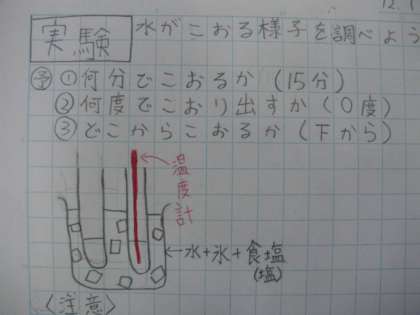 12.1
実験 水がこおる様子を調べよう
予 ①何分でこおるか(15分)
②何度でこおり出すか(0度)
③どこからこおるか(下から)
温度計
←水+氷+食塩
(塩)
〈注意〉